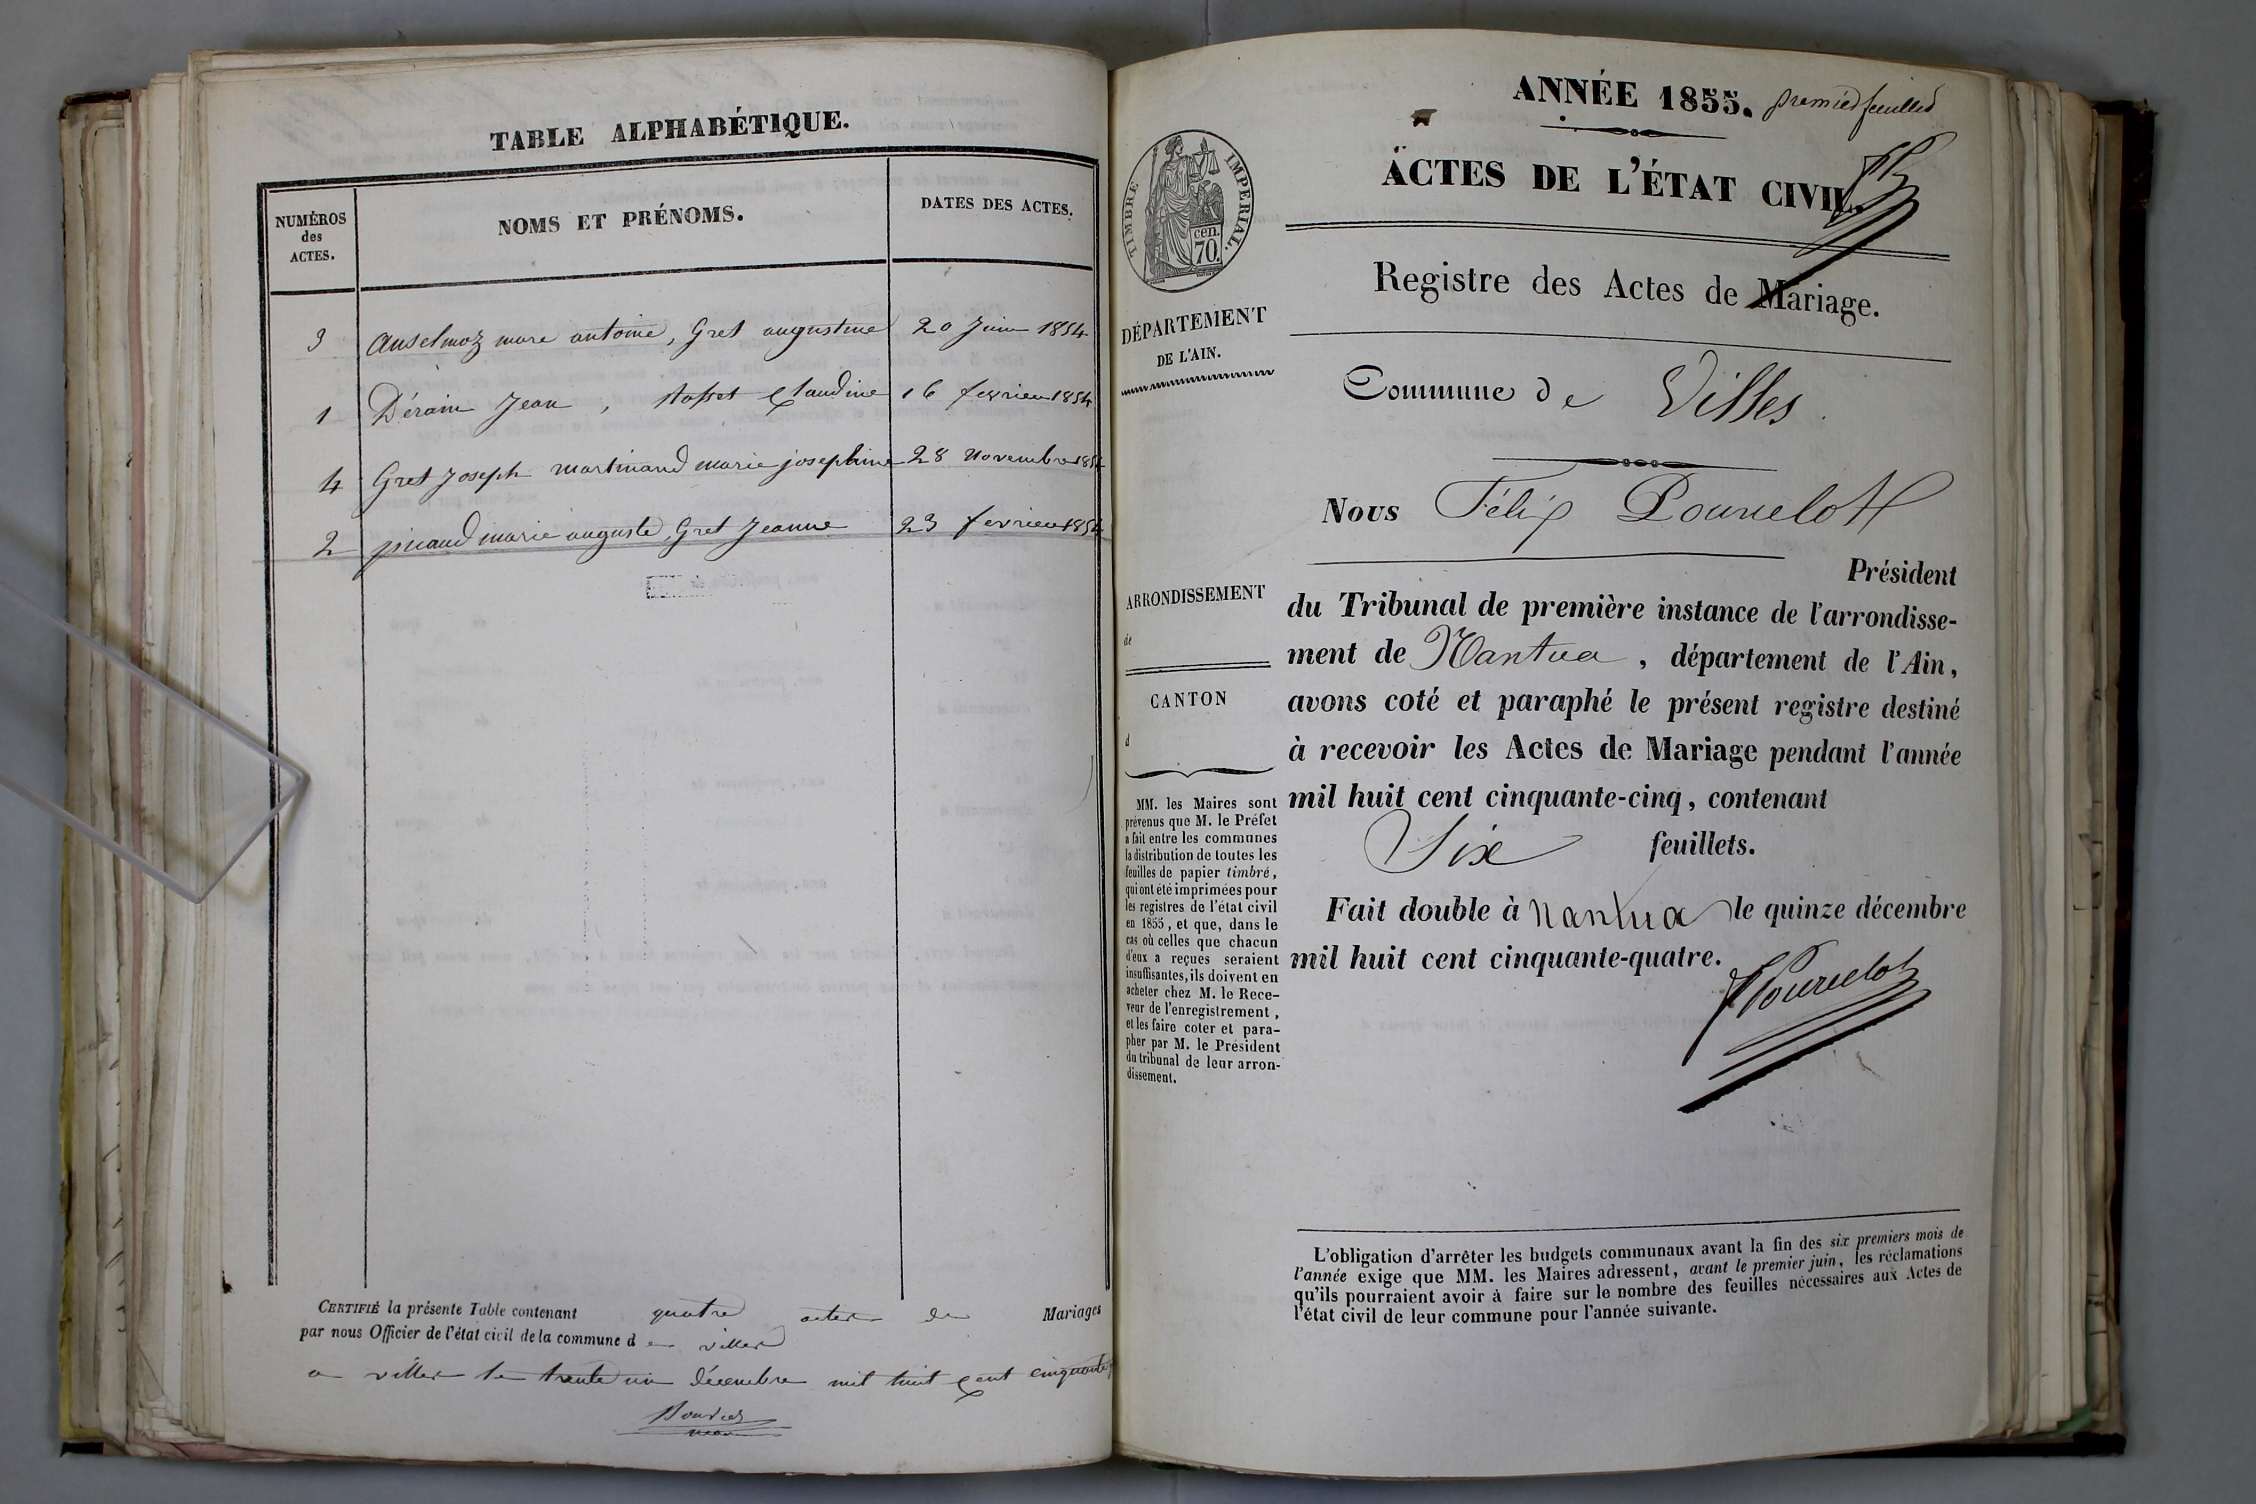 TABLE ALPHABÉTIQUE.
NUMÉROS
des
ACTES.
NOMS ET PRÉNOMS.
DATES DES ACTES.
3 Anselmoz marc antoine, Gret augustine 20 Juin 1854
1 Dérain Jean, Claudine 16 fevrier 1854
4 Gret Joseph martinand marie josephine 28 Novembre 185
2 pinaud marie auguste, Gret Jeanne 23 fevrier 1854
CERTIFIÉ la présente Table contenant quatre actes de Mariages
par nous Officier de l'état civil de la commune d e villes
a villes le trente un décembre mil huit cent cinquante
ANNÉE 1855. premier feuillet
ACTES DE L'ÉTAT CIVIL.
TIMBRE IMPERIAL.
cen.
70.
Registre des Actes de Mariage.
DÉPARTEMENT
DE L'AIN.
Commune de Villes
Nous Félix Pourcelot
Président
ARRONDISSEMENT
de
CANTON
d
du Tribunal de première instance de l'arrondisse-
ment de Nantua, département de l'Ain,
avons coté et paraphé le présent registre destiné
à recevoir les Actes de Mariage pendant l'année
mil huit cent cinquante-cinq, contenant
Six feuillets.
Fait double à Nantua le quinze décembre
mil huit cent cinquante-quatre.
Pourcelot
MM. les Maires sont
prévenus que M. le Préfet
a fait entre les communes
la distribution de toutes les
feuilles de papier timbré,
qui ont été imprimées pour
les registres de l'état civil
en 1855, et que, dans le
cas où celles que chacun
d'eux a reçues seraient
insuffisantes, ils doivent en
acheter chez M. le Rece-
veur de l'enregistrement,
et les faire coter et para-
pher par M. le Président
du tribunal de leur arron-
dissement.
L'obligation d'arrêter les budgets communaux avant la fin des six premiers mois de
l'année exige que MM. les Maires adressent, avant le premier juin, les réclamations
qu'ils pourraient avoir à faire sur le nombre des feuilles nécessaires aux Actes de
l'état civil de leur commune pour l'année suivante.